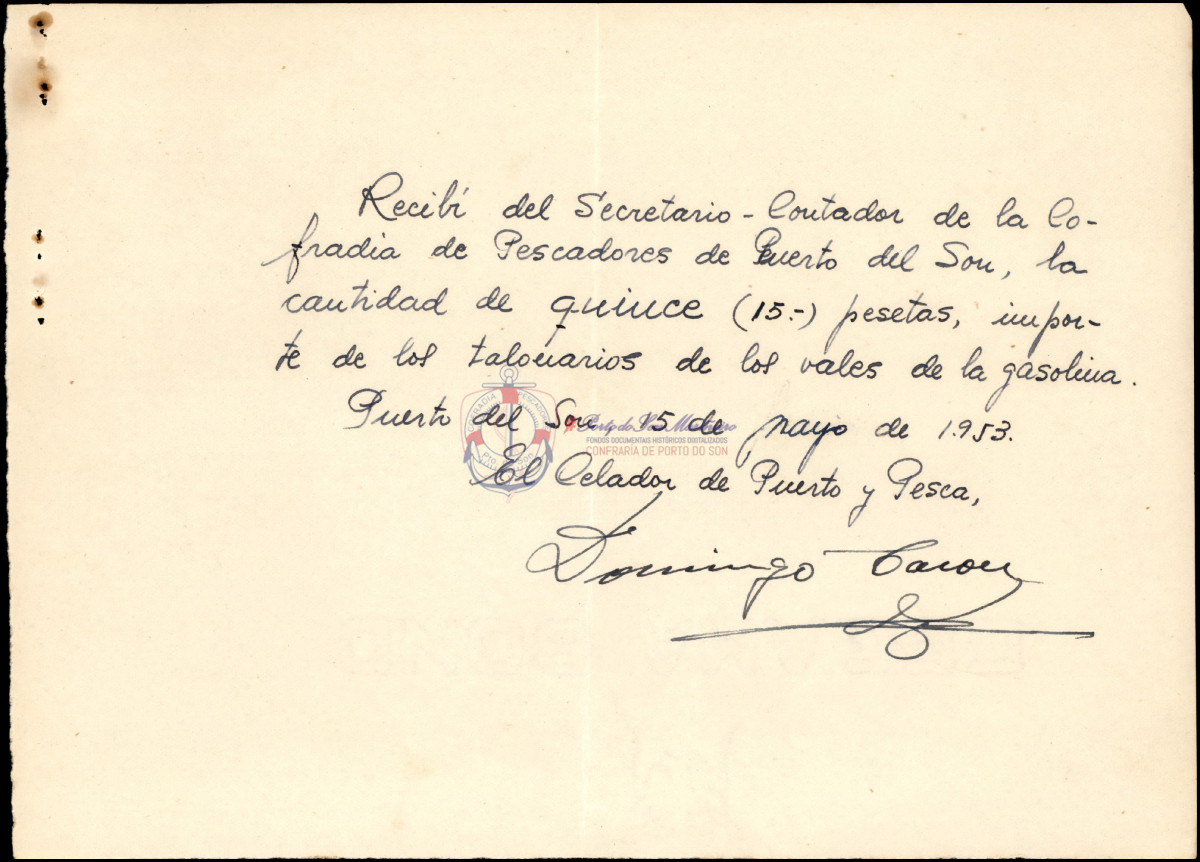 Recibí del Secretario-Contador de la Co-
fradia de Pescadores de Puerto del Son, la
cantidad de quince (15.-) pesetas, impor-
te de los talonarios de los vales de la gasolina.
Puerto del Son 15 de mayo de 1.953.
El Celador de Puerto y Pesca,
Domingo
COFRADIA PESCADORES
Pto. Son
Porto do Son Mariñeiro
FONDOS DOCUMENTAIS HISTÓRICOS DIXITALIZADOS
CONFRARÍA DE PORTO DO SON